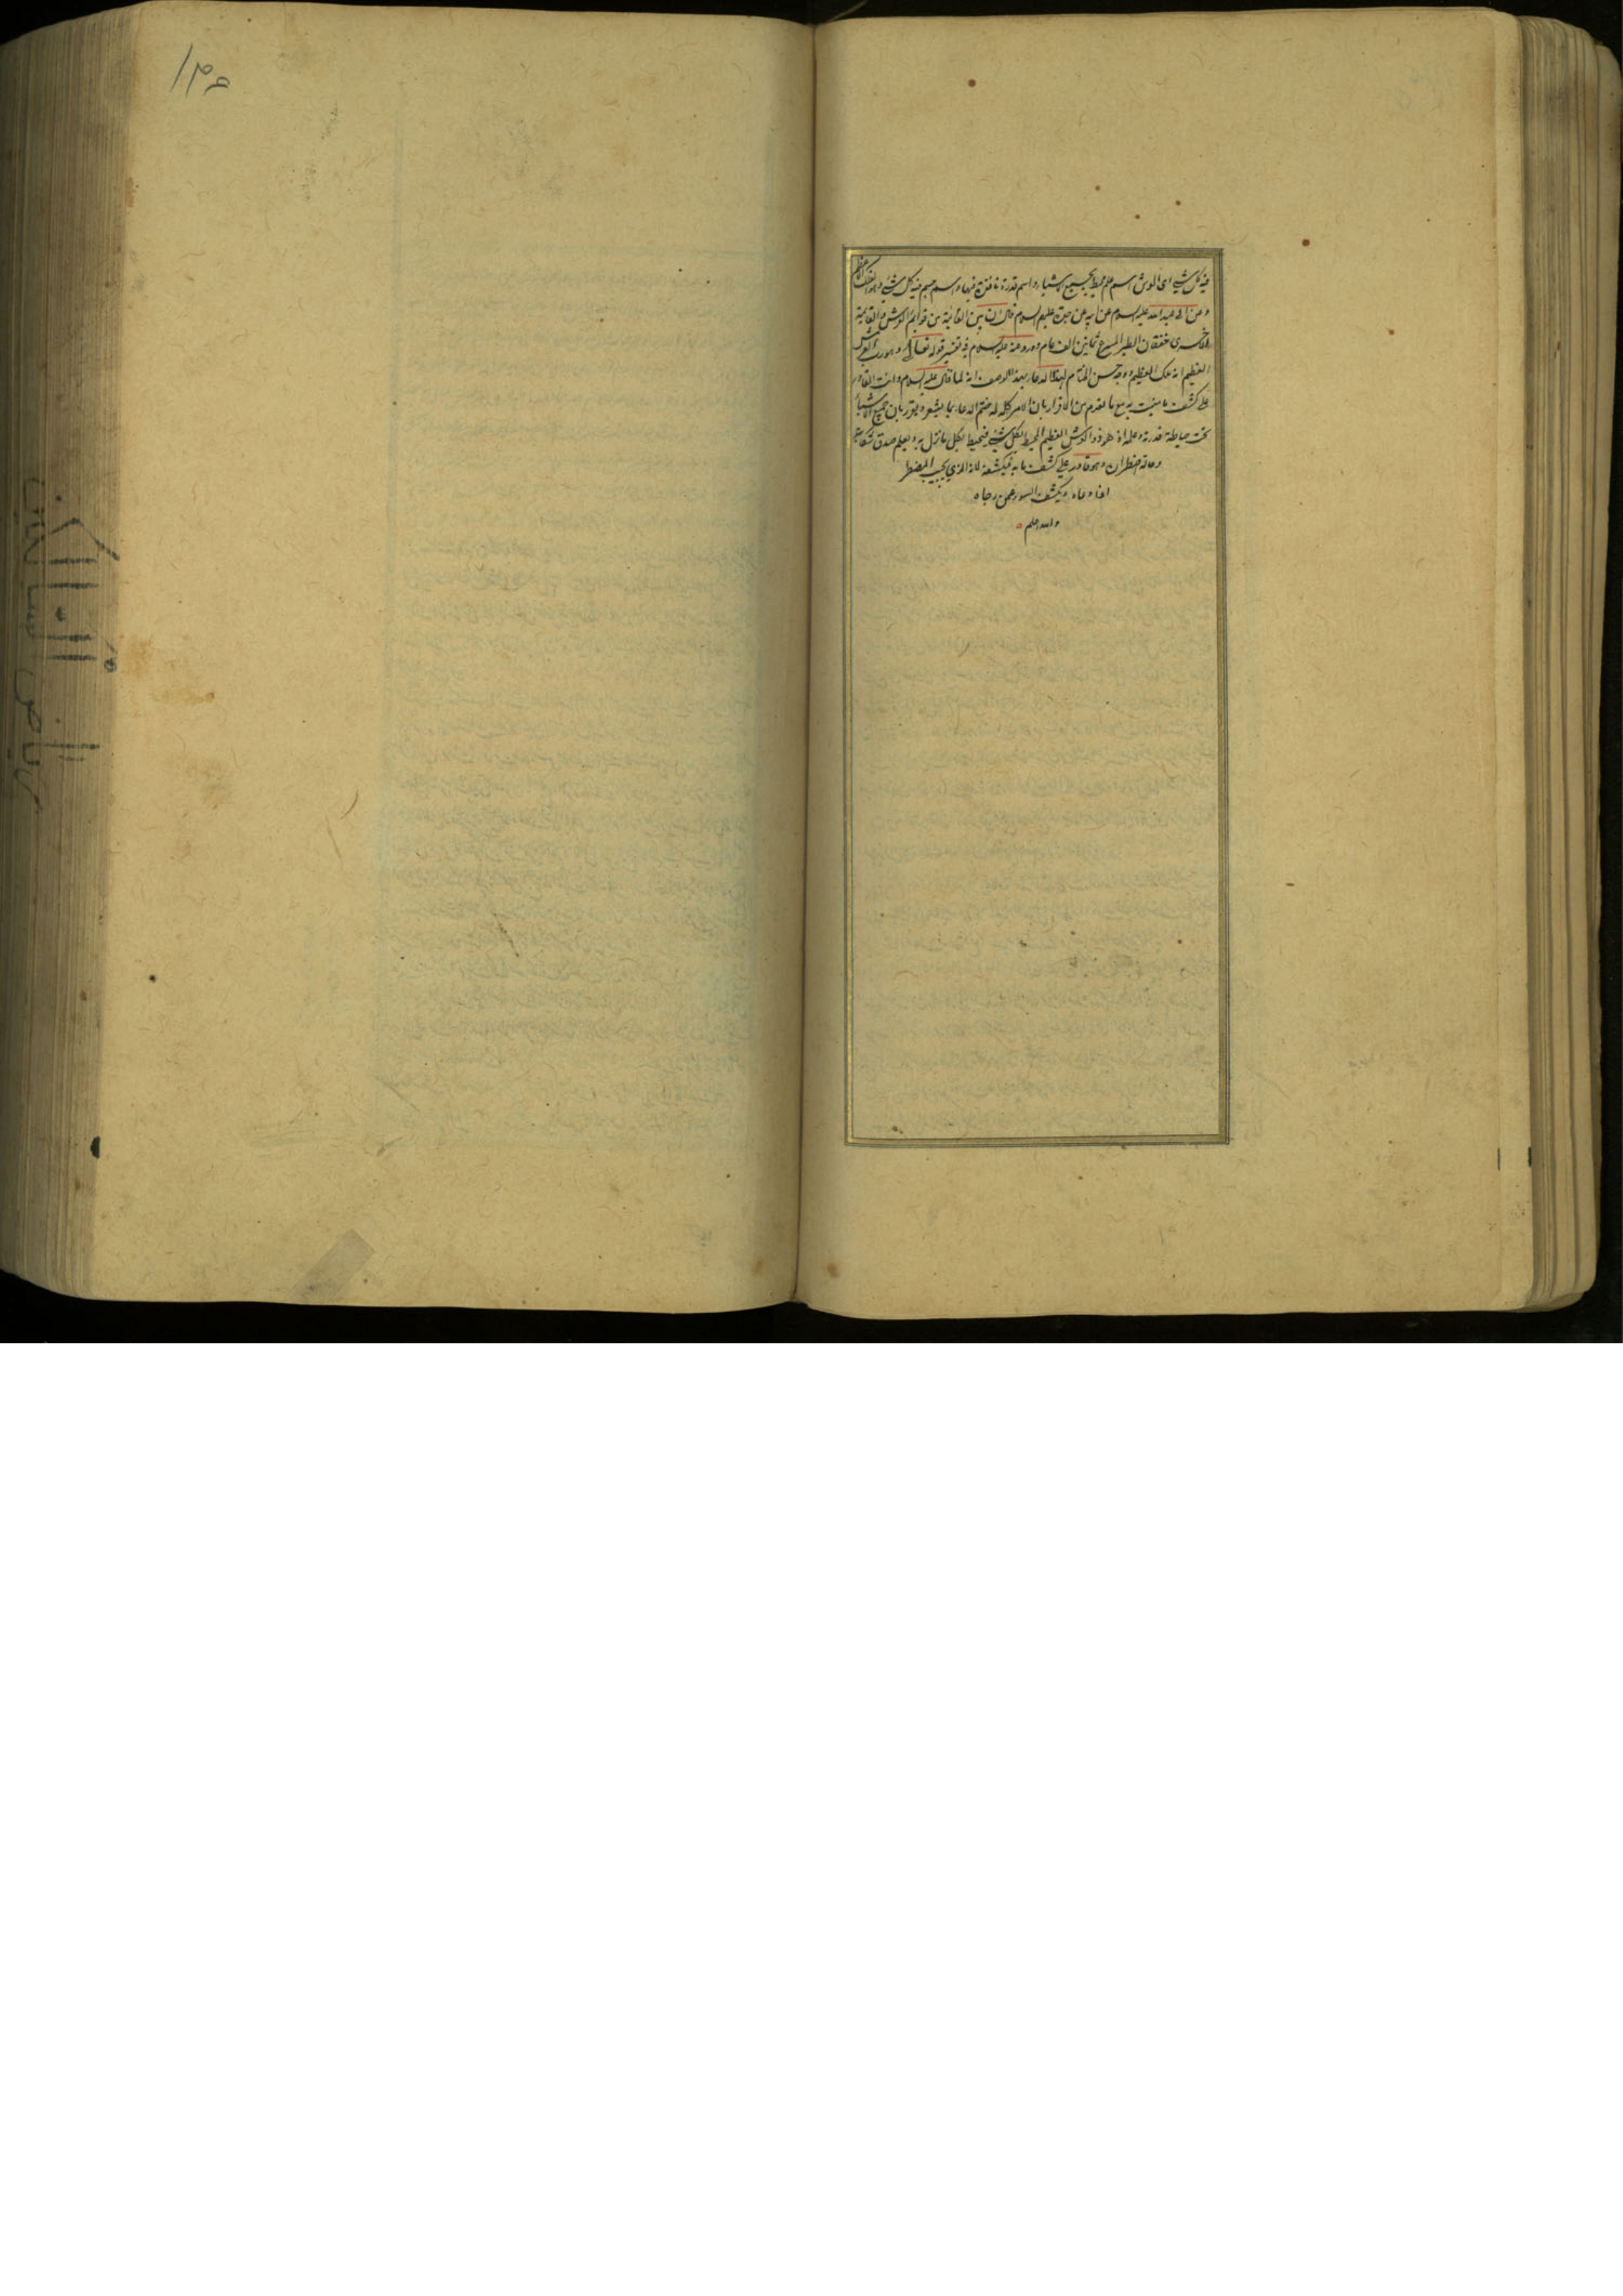 فيه كل شيء اى العرش اسم علم محيط بجميع الاشياء واسم قدرة نافذة فيها واسم جسم فيه كل شيء وهو الفلك الاعظم
وعن ابى عبدالله عليه السلام عن ابيه عن جده عليهم السلام قال ان بين القائمة من قوائم العرش والقائمة
الاخرى خفقان الطير المسرع ثمانين الف عام وورد عنه عليه السلام فى تفسير قوله تعالى وهو رب العرش
العظيم انه ملك العظيم ووجه حسن الختام لهذا الدعاء بهذا الوصف انه لما قال عليه السلام وانت القادر
على كشف ما منيت به مع ما تقدم من الاقرار بان الامر كله له ختم الدعاء بما يشعر ويقرر بان جميع الاشياء
تحت حياطة قدرته وعلمه اذ هو ذو العرش العظيم المحيط بكل شيء فيحيط بكل ما نزل به ويعلم صدق شكايته
وحالة اضطراره وهو قادر على كشف ما به فيكشفه لانه الذي يجيب المضطر
اذا دعاه ويكشف السوء عمن رجاه
والله اعلم
رياض السالكين